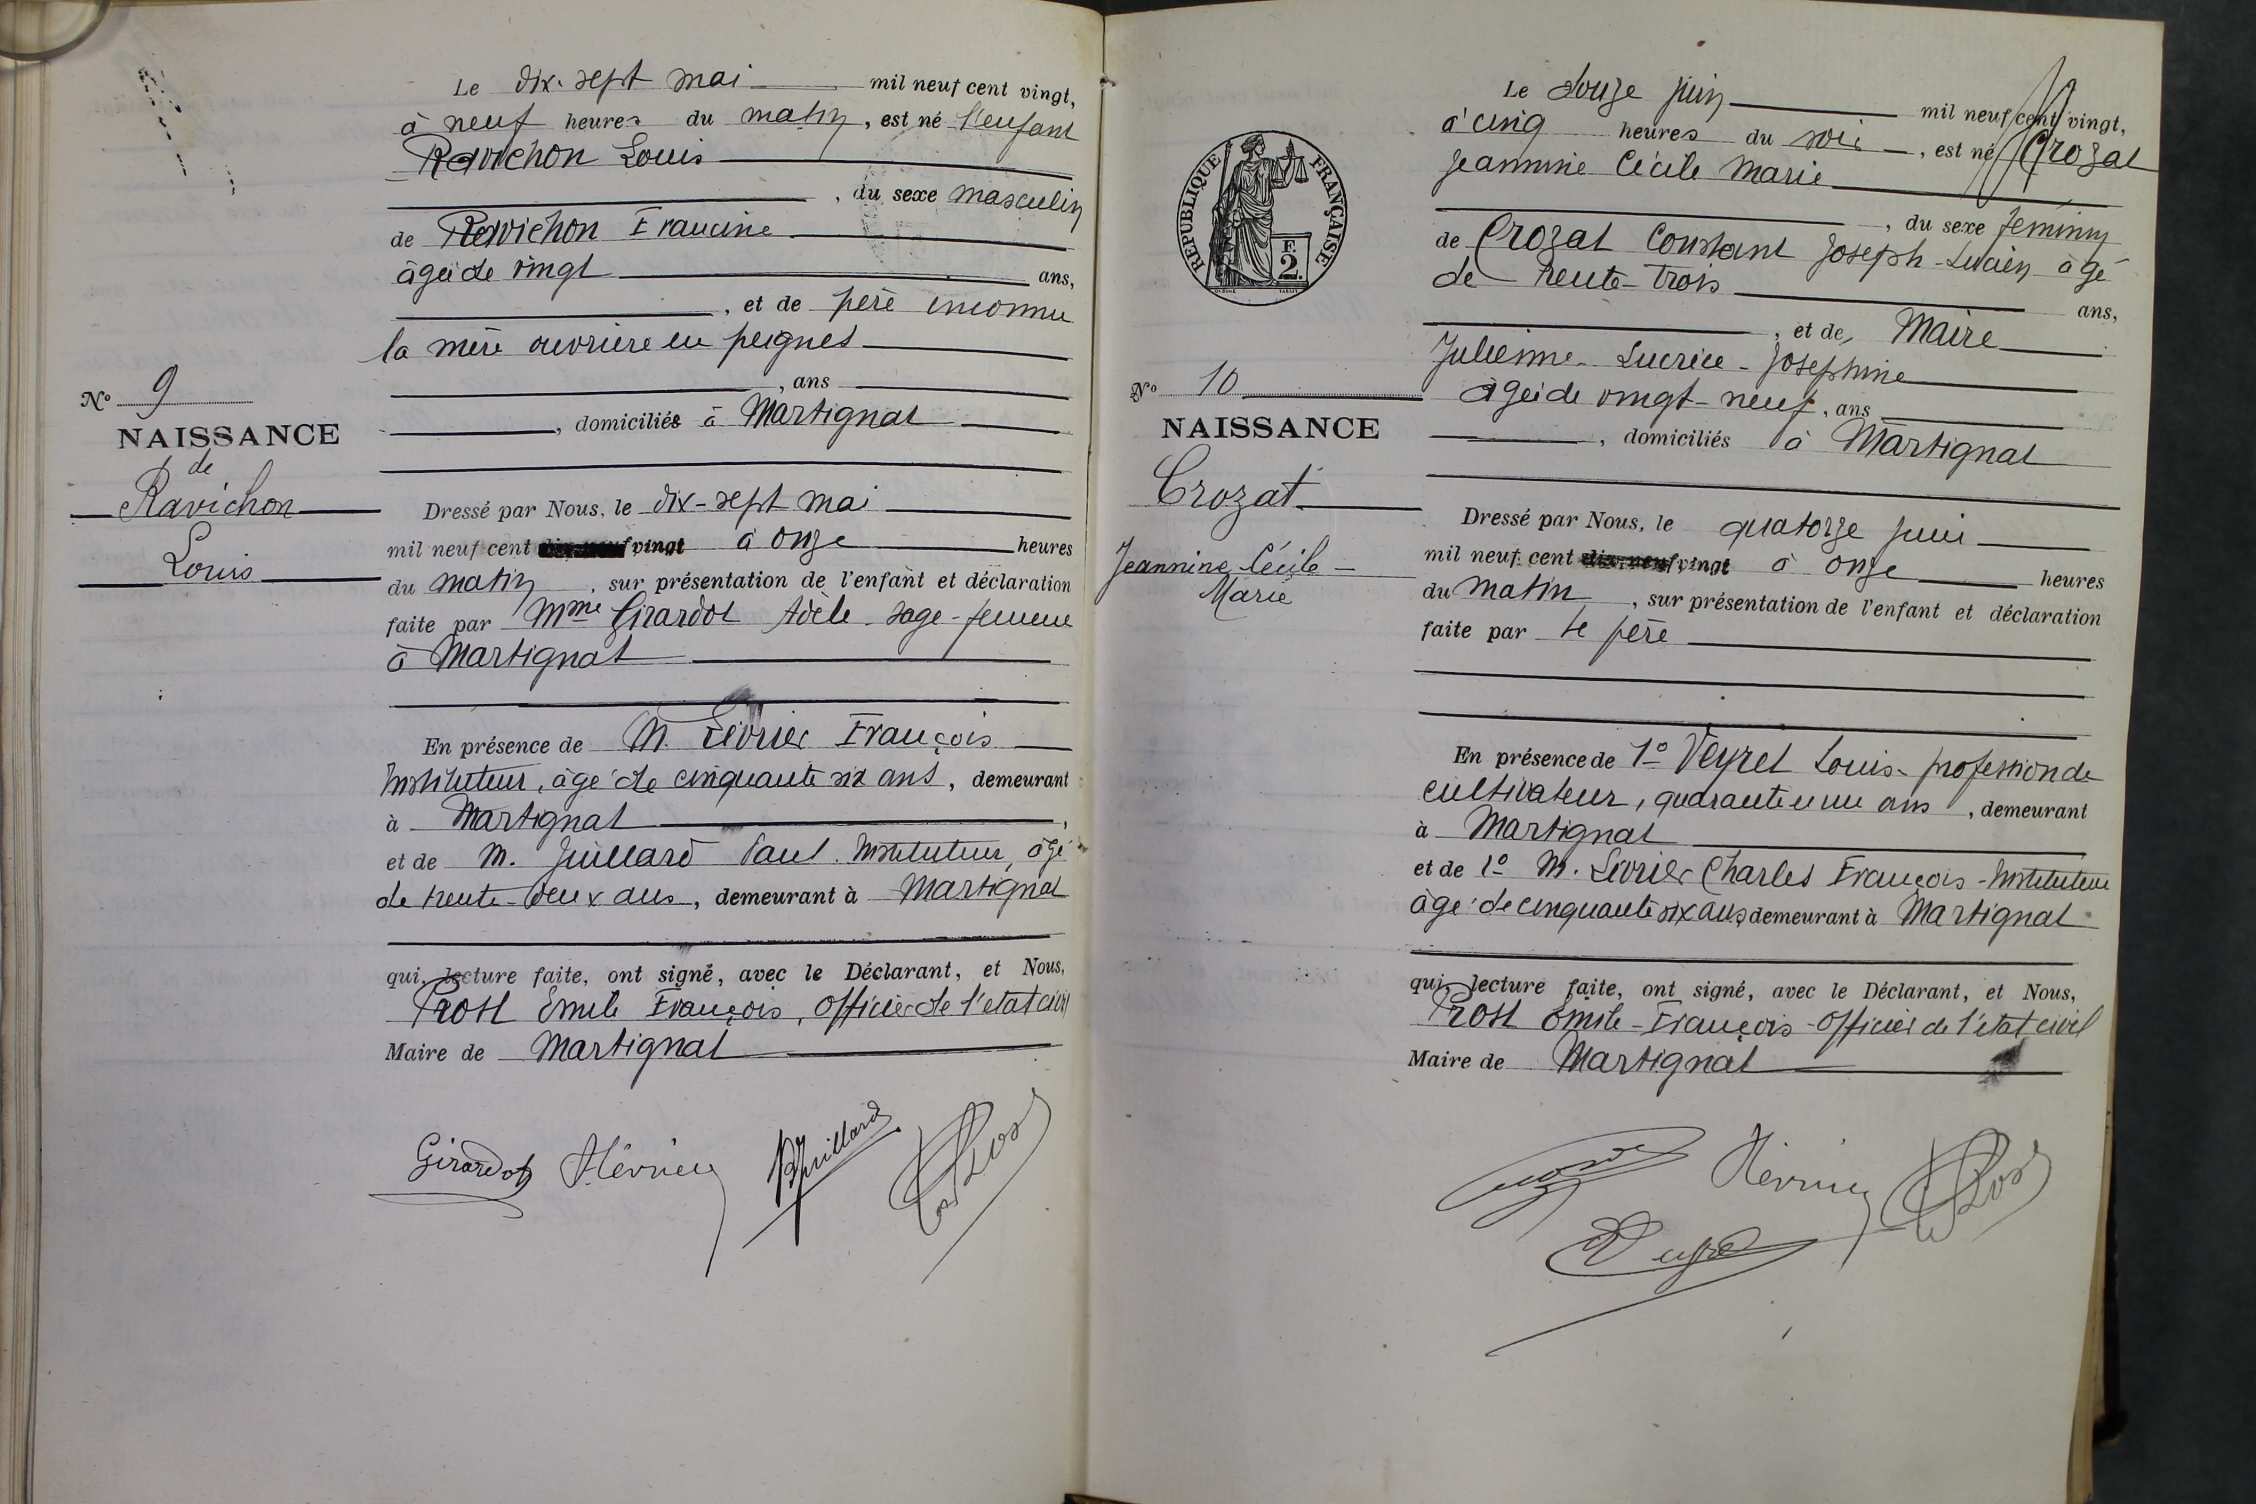 Le dix-sept mai mil neuf cent vingt,
à neuf heures du matin, est né l'enfant
Ravichon Louis
, du sexe masculin
de Ravichon Francine
âgée de vingt ans,
, et de père inconnu
la mère ouvrière en peignes
, ans
, domiciliés à Martignat
N° 9
NAISSANCE
de
Ravichon
Louis
Dressé par Nous, le dix-sept mai
mil neuf cent vingt à onze heures
du matin, sur présentation de l'enfant et déclaration
faite par Mme Girardot Adèle sage-femme
à Martignat
En présence de M. Lévrier François
Instituteur, âgé de cinquante six ans, demeurant
à Martignat,
et de M. Juillard Paul Instituteur, âgé
de trente-deux ans, demeurant à Martignat
qui, lecture faite, ont signé, avec le Déclarant, et Nous,
Prost Emile François, officier de l'état civil
Maire de Martignat
Girardot Lévrier Juillard Prost
Le douze juin mil neuf cent vingt,
à cinq heures du soir, est né Crozat
Jeannine Cécile Marie
, du sexe féminin
de Crozat Constant Joseph-Lucien âgé
de trente-trois ans,
, et de, Maire
Julienne-Lucrèce-Joséphine
âgée de vingt-neuf, ans
, domiciliés à Martignat
RÉPUBLIQUE FRANÇAISE
F.
2.
N° 10
NAISSANCE
Crozat
Jeannine Cécile
Marie
Dressé par Nous, le quatorze juin
mil neuf cent vingt à onze heures
du matin, sur présentation de l'enfant et déclaration
faite par le père
En présence de 1° Veyret Louis-profession de
cultivateur, quarante un ans, demeurant
à Martignat
et de 1° M. Lévrier Charles François-Instituteur
âgé de cinquante six ans, demeurant à Martignat
qui, lecture faite, ont signé, avec le Déclarant, et Nous,
Prost Emile-François-officier de l'état civil
Maire de Martignat
Crozat Lévrier Prost
Veyret